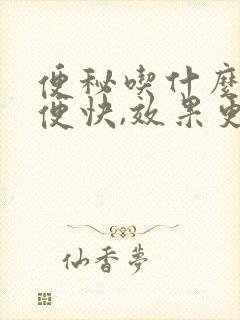 便秘喫什麼
便快,效果更
仙香夢